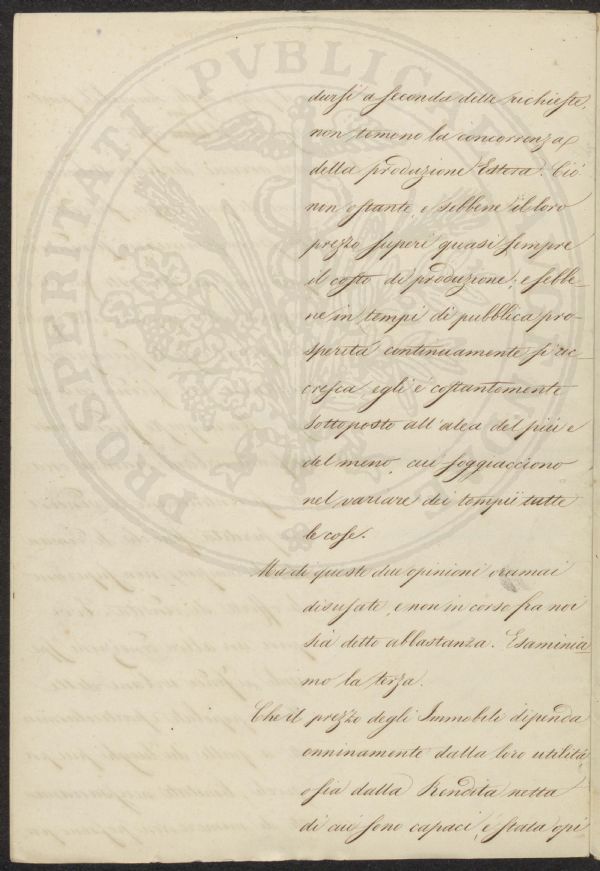 dursi a seconda delle richieste,
non temeno la concorrenza
della produzione Estera. Ciò
non ostante, e sebbene il loro
prezzo superi quasi sempre
il costo di produzione; e sebbe-
ne in tempi di pubblica pro-
sperità continuamente si ac-
cresca, egli è costantemente
sottoposto all'alea del più e
del meno, cui soggiacciono
nel variare dei tempii tutte
le cose.
Ma di queste due opinioni oramai
disusate, e non in corso fra noi
sia detto abbastanza. Esaminia
mo la terza.
Che il prezzo degli Immobili dipenda
onninamente dalla loro utilità,
o sia dalla Rendita netta
di cui sono capaci, è stata opi
PROSPERITATI PVBLICAE